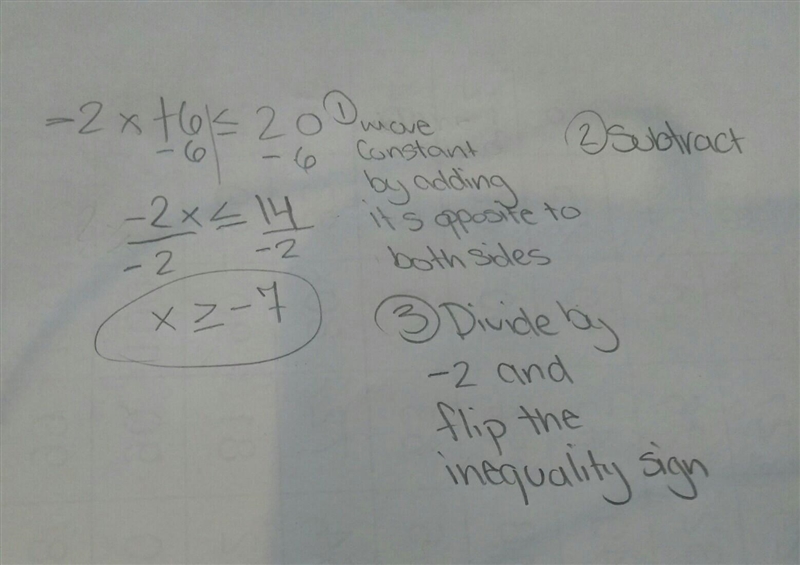 -2x+6 ≤ 20
-6 -6
-2x ≤ 14
-2 -2
x ≥ -7
① move
constant
by adding
it's opposite to
both sides
② Subtract
③ Divide by
-2 and
flip the
inequality sign